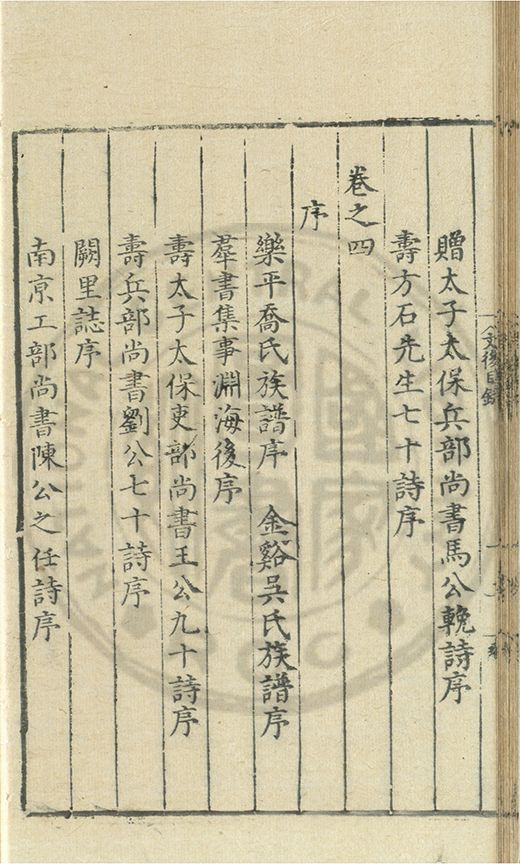 贈太子太保兵部尚書馬公輓詩序
壽方石先生七十詩序
卷之四
序
樂平喬氏族譜序　金谿吳氏族譜序
羣書集事淵海後序
壽太子太保吏部尚書王公九十詩序
壽兵部尚書劉公七十詩序
闕里誌序
南京工部尚書陳公之任詩序
文後目錄